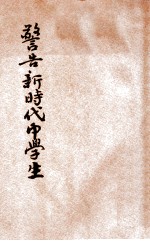 警告新時代中學生